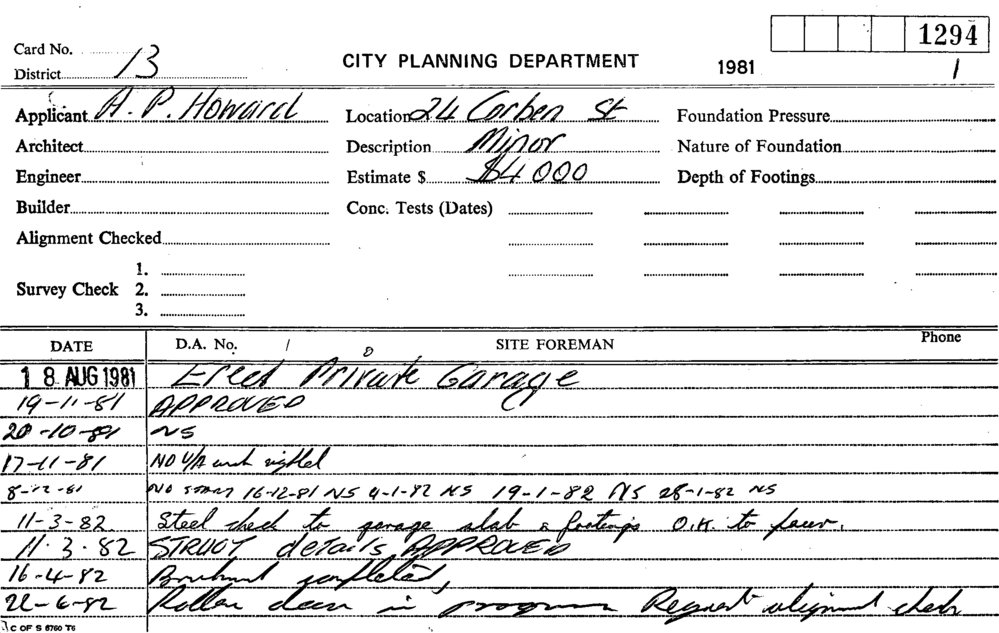 1294
Card No.
District 13
CITY PLANNING DEPARTMENT
1981
1
Applicant A. P. Howard
Location 24 Corben St
Foundation Pressure
Architect
Description Minor
Nature of Foundation
Engineer
Estimate $ $4 000
Depth of Footings
Builder
Conc. Tests (Dates)
Alignment Checked
Survey Check
1.
2.
3.
DATE
D.A. No.
SITE FOREMAN
Phone
18 AUG 1981 Erect Private Garage
19-11-81 APPROVED
20-10-81 NS
17-11-81 NO work sighted
8-12-81 NO START 16-12-81 NS 4-1-82 NS 19-1-82 NS 28-1-82 NS
11-3-82 Steel check to garage slab & footings O.K. to pour.
11.3.82 STRUCT details APPROVED
16-4-82 completed,
22-6-82 Roller door in progress Request alignment check
C OF S 6760 T6